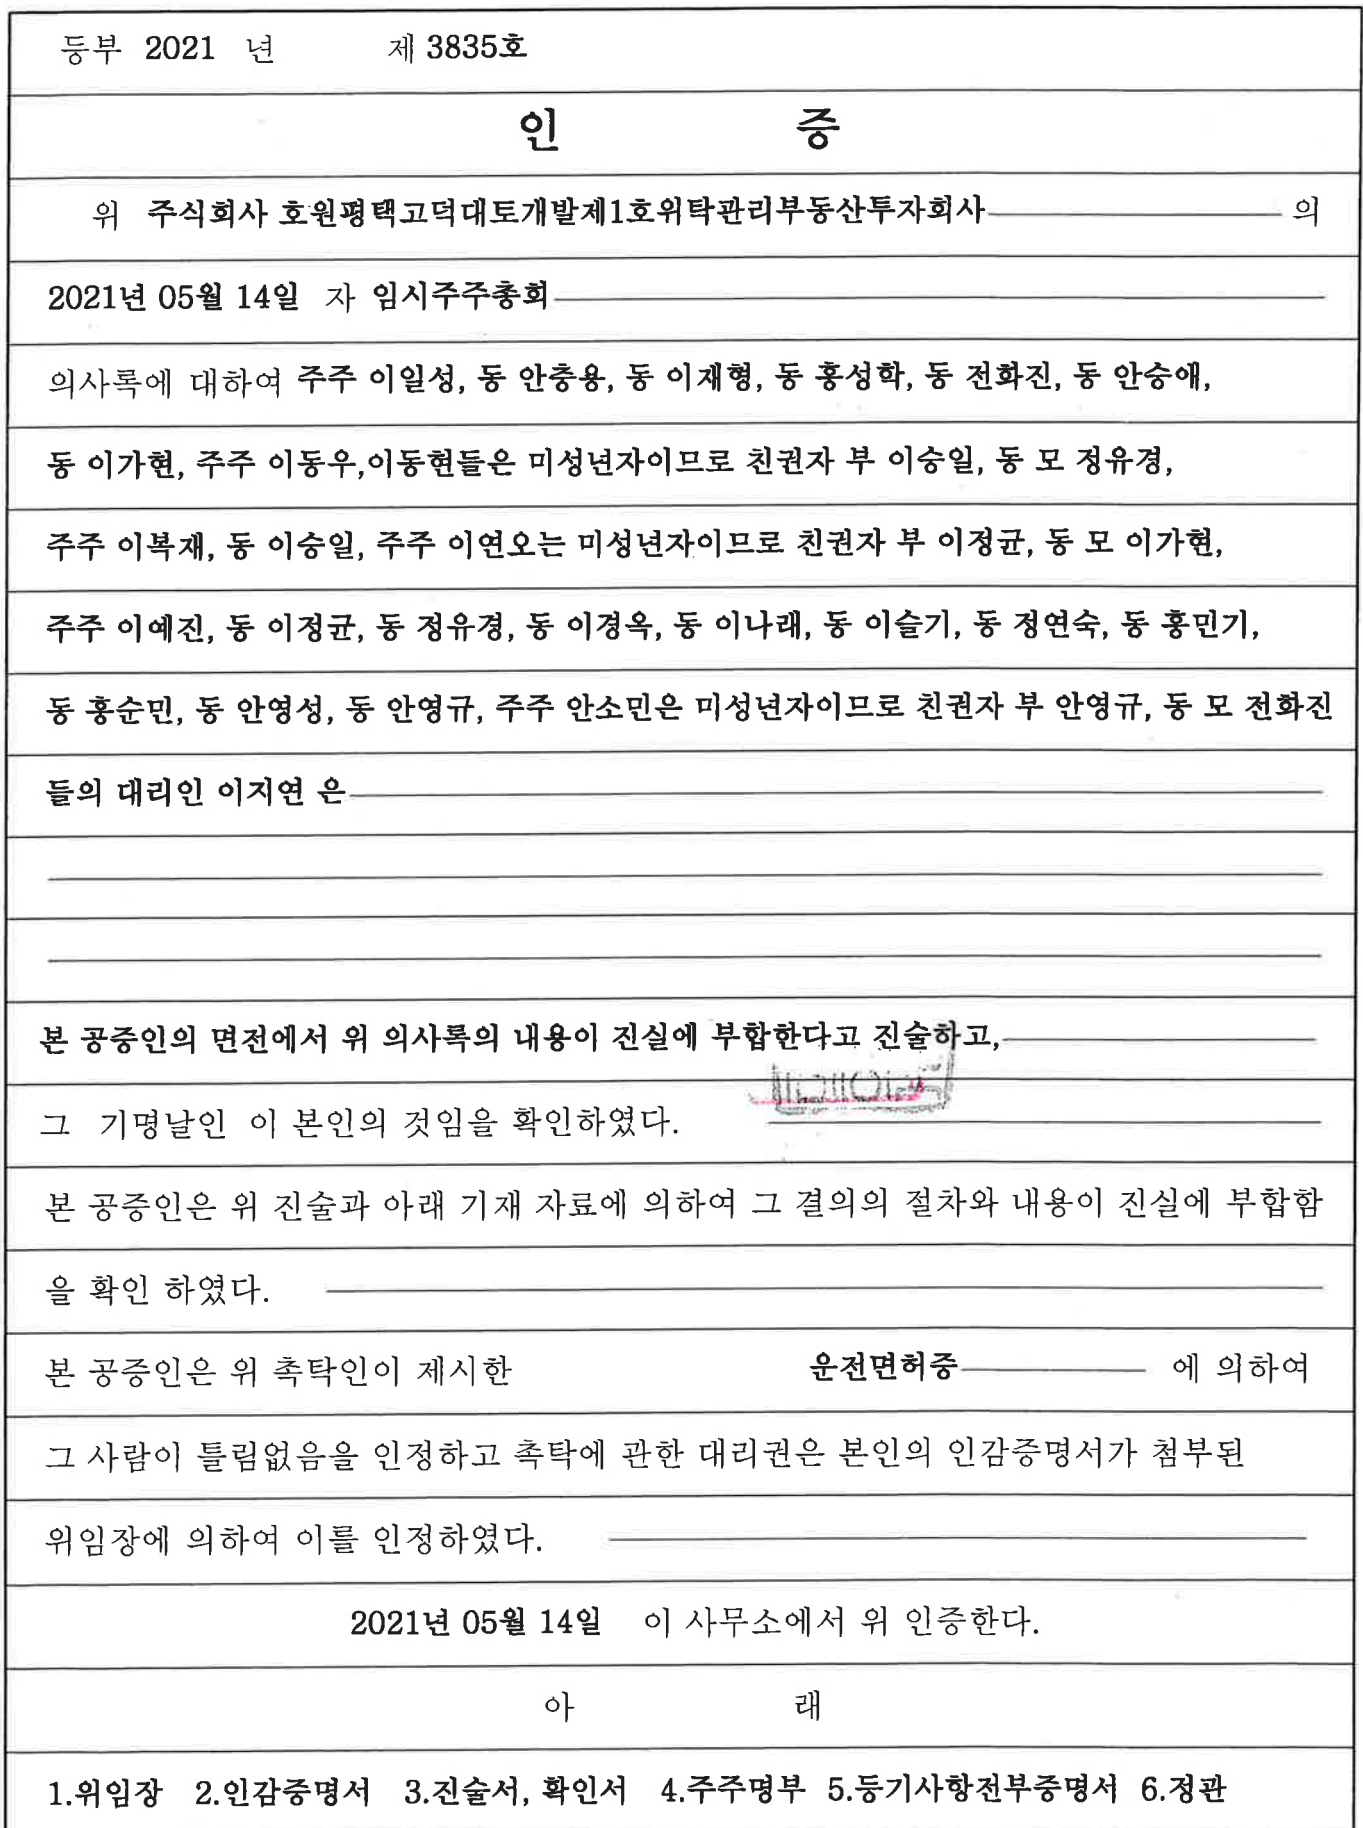 등부 2021 년 제 3835호
인 증
위 주식회사 호원평택고덕대토개발제1호위탁관리부동산투자회사 의
2021년 05월 14일 자 임시주주총회
의사록에 대하여 주주 이일성, 동 안충용, 동 이재형, 동 홍성학, 동 전화진, 동 안승애,
동 이가현, 주주 이동우,이동현들은 미성년자이므로 친권자 부 이승일, 동 모 정유경,
주주 이복재, 동 이승일, 주주 이연오는 미성년자이므로 친권자 부 이정균, 동 모 이가현,
주주 이예진, 동 이정균, 동 정유경, 동 이경옥, 동 이나래, 동 이슬기, 동 정연숙, 동 홍민기,
동 홍순민, 동 안영성, 동 안영규, 주주 안소민은 미성년자이므로 친권자 부 안영규, 동 모 전화진
들의 대리인 이지연 은
본 공증인의 면전에서 위 의사록의 내용이 진실에 부합한다고 진술하고,
그 기명날인 이 본인의 것임을 확인하였다.
본 공증인은 위 진술과 아래 기재 자료에 의하여 그 결의의 절차와 내용이 진실에 부합함
을 확인 하였다.
본 공증인은 위 촉탁인이 제시한 운전면허증 에 의하여
그 사람이 틀림없음을 인정하고 촉탁에 관한 대리권은 본인의 인감증명서가 첨부된
위임장에 의하여 이를 인정하였다.
2021년 05월 14일 이 사무소에서 위 인증한다.
아 래
1.위임장 2.인감증명서 3.진술서, 확인서 4.주주명부 5.등기사항전부증명서 6.정관